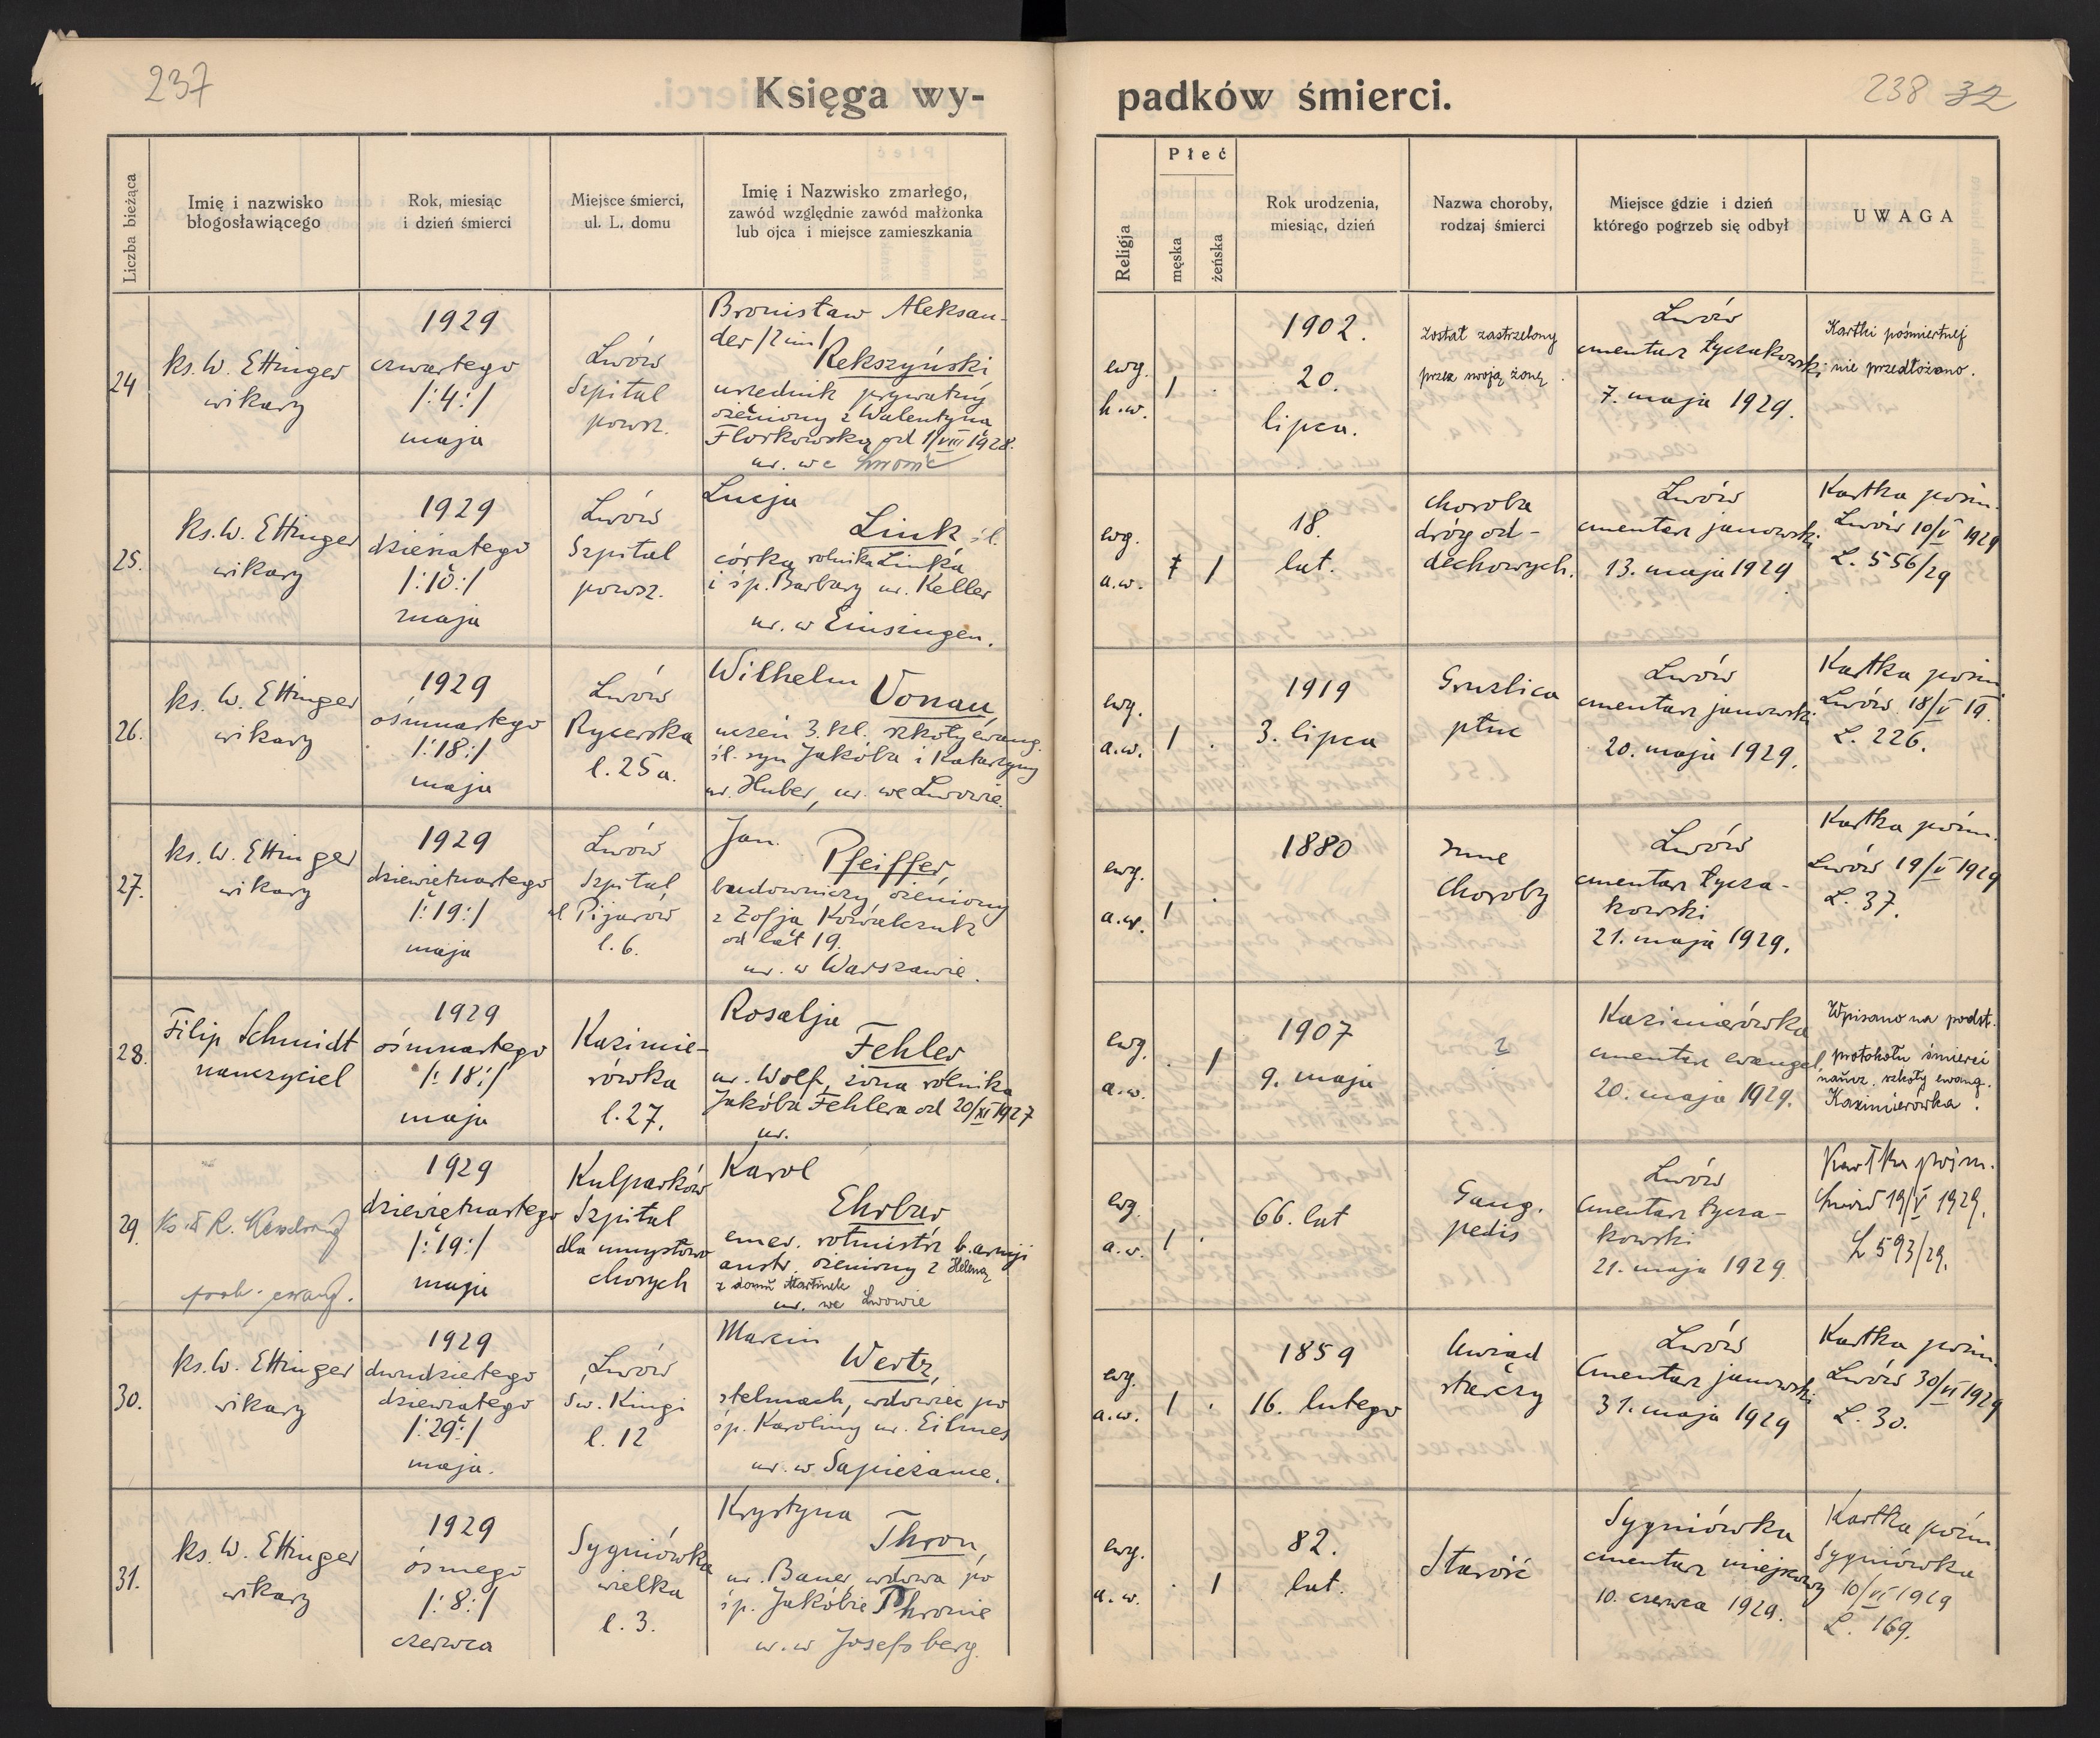 237
Księga wy-
padków śmierci.
238 32
Liczba bieżąca
Imię i nazwisko
błogosławiącego
Rok, miesiąc
i dzień śmierci
Miejsce śmierci,
ul. L. domu
Imię i Nazwisko zmarłego,
zawód względnie zawód małżonka
lub ojca i miejsce zamieszkania
Religja
Płeć
męska
żeńska
Rok urodzenia,
miesiąc, dzień
Nazwa choroby,
rodzaj śmierci
Miejsce gdzie i dzień
którego pogrzeb się odbył
UWAGA
24
ks. W. Ettinger
wikary
1929
czwartego
/:4:/
maja
Lwów
Szpital
powsz.
Bronisław Aleksan-
der
Rekszyński
urzednik prywatny
ożeniony z Walentyną
Florkowską od 1/VIII 1928.
ur. we Lwowie
ewg.
h.w.
1
.
1902.
20.
lipca.
został zastrzelony
przez swoją żonę.
Lwów
cmentarz łyczakowski
7. maja 1929.
Kartki pośmiertnej
nie przedłożono.
25.
ks. W. Ettinger
wikary
1929
dziesiątego
/:10:/
maja
Lwów
Szpital
powsz.
Lucja
Link śl.
córka rolnika Linka
i śp. Barbary ur. Keller
ur. w Einsingen.
ewg.
a.w.
1
18.
lat.
choroba
dróg od-
dechowych.
Lwów
cmentarz janowski
13. maja 1929
Kartka pośm.
Lwów 10/V 1929
L. 556/29
26.
ks. W. Ettinger
wikary
1929
ośmnastego
/:18:/
maja
Lwów
Rycerska
l. 25a.
Wilhelm
Vonau
uczeń 3. kl. szkoły ewang.
śl. syn Jakóba i Katarzyny
ur. Huber, ur. we Lwowie.
ewg.
a.w.
1
.
1919
3. lipca
Gruzlica
płuc
Lwów
cmentarz janowski
20. maja 1929.
Kartka pośm.
Lwów 18/V 19.
L. 226.
27.
ks. W. Ettinger
wikary
1929
dziewiętnastego
/:19:/
maja
Lwów
Szpital
ul Pijarów
l. 6.
Jan
Pfeiffer,
budowniczy, ożeniony
z Zofją Kowalczuk
od lat 19.
ur. w Warszawie.
ewg.
a.w.
1
.
1880
Inne
Choroby
Lwów
cmentarz łycza-
kowski
21. maja 1929.
Kartka pośm.
Lwów 19/V 1929
L. 37.
28.
Filip Schmidt
nauczyciel
1929
ośmnastego
/:18:/
maja
Kazimie-
rówka
l. 27.
Rosalja
Fehler
ur. Wolf, żona rolnika
Jakóba Fehlera od 20/XI 1927
ur.
ewg.
a.w.
.
1
1907
9. maja
?
Kazimierówka
cmentarz ewangel.
20. maja 1929.
Wpisano na podst.
protokołu śmierci
naucz. szkoły ewang.
Kazimierówka.
29.
prob. ewang.
1929
dziewiętnastego
/:19:/
maja
Kulparków
Szpital
dla umysłowo
chorych
Karol
Ehrbar
emer. rotmistrz b. armji
austr. ożeniony z Heleną
z domu Martinek
ur. we Lwowie
ewg.
a.w.
1
.
66. lat
Gang.
pedis
Lwów
Cmentarz łycza-
kowski
21. maja 1929
Kartka pośm.
Lwów 19/V 1929.
L 593/29.
30.
ks. W. Ettinger
wikary
1929
dwudziestego
dziewiątego
/:29:/
maja.
Lwów
św. Kingi
l. 12
Marcin
Wertz,
stelmach, wdowiec po
śp. Karoliny ur. Eilmes
ur. w Sapieżance.
ewg.
a.w.
1
.
1859
16. lutego
Uwiąd
starczy
Lwów
Cmentarz janowski
31. maja 1929
Kartka pośm.
Lwów 30/VI 1929
L. 30.
31.
ks. W. Ettinger
wikary
1929
ósmego
/:8:/
czerwca
Sygniówka
wielka
l. 3.
Krystyna
Thron,
ur. Bauer wdowa po
śp. Jakóbie Thronie
ur. w Josefsberg.
ewg.
a.w.
.
1
82.
lat.
Starość
Sygniówka
cmentarz miejscowy
10. czerwca 1929.
Kartka pośm.
Sygniówka
10/VI 1929
L. 169.